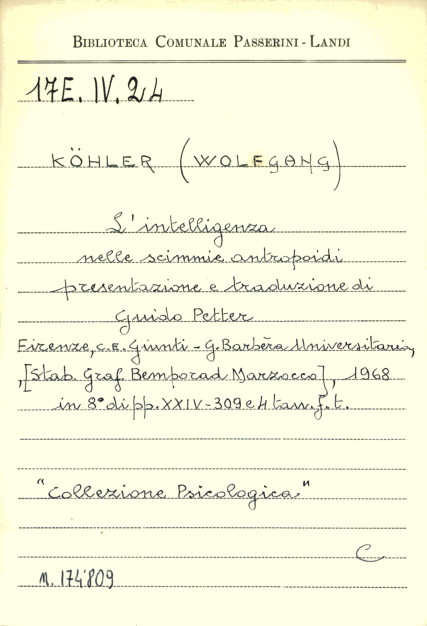 BIBLIOTECA COMUNALE PASSERINI - LANDI
17E. IV. 24
KÖHLER (WOLFGANG)
L'intelligenza
nelle scimmie antropoidi
presentazione e traduzione di
Guido Petter
Firenze, C.E. Giunti - G. Barbèra Universitaria,
,[Stab. Graf. Bemporad Marzocco], 1968
in 8° di pp. XXIV-309 e 4 tavv. f. t.
"Collezione Psicologica"
C
n. 174809